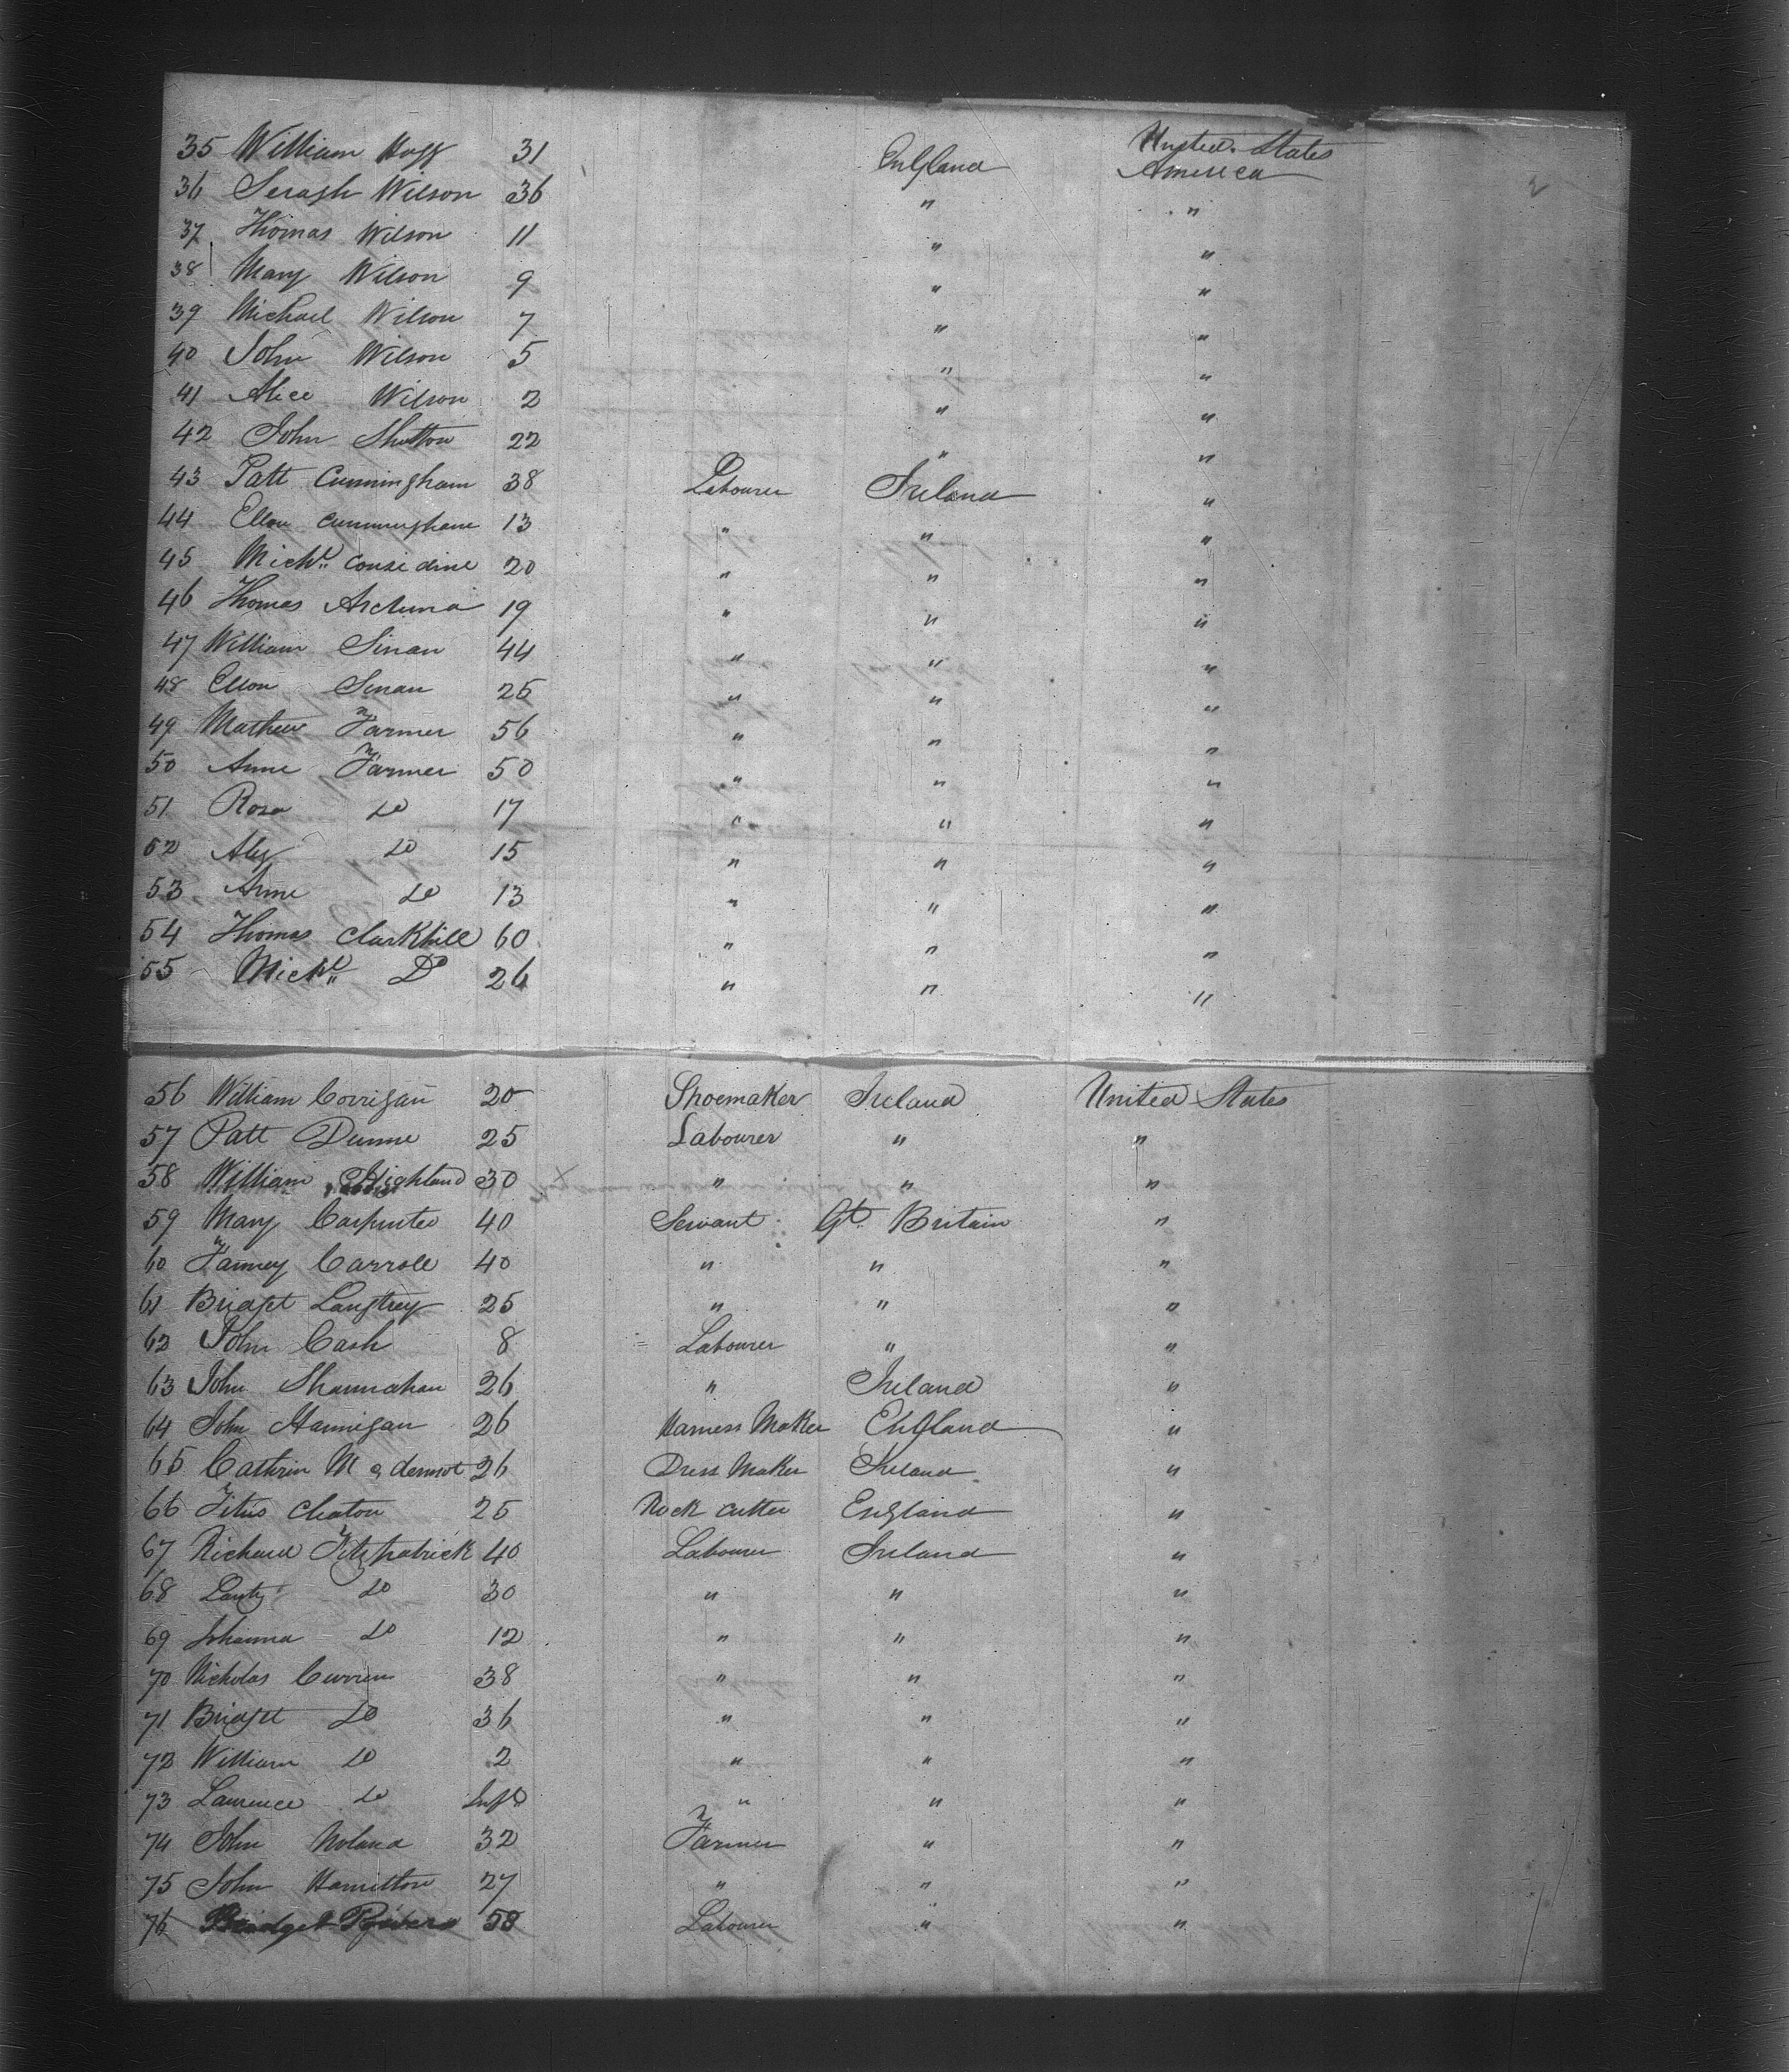 35 William Hogg 31 England United States America
36 Seragh Wilson 36 " "
37 Thomas Wilson 11 " "
38 Mary Wilson 9 " "
39 Michael Wilson 7 " "
40 John Wilson 5 " "
41 Alice Wilson 2 " "
42 John Shutton 22 " "
43 Patt Cunningham 38 Labourer Ireland "
44 Ellen Cunningham 13 " " "
45 Michl. Considine 20 " " "
46 Thomas 19 " " "
47 William Sinan 44 " " "
48 Ellen Sinan 25 " " "
49 Mathew Farmer 56 " " "
50 Anne Farmer 50 " " "
51 Rosa Do 17 " " "
52 Do 15 " " "
53 Anne Do 13 " " "
54 Thomas Clarkhill 60 " " "
55 Michl. Do 26 " " "
56 William Corrigan 20 Shoemaker Ireland United States
57 Patt Dunne 25 Labourer " "
58 William Highland 30 " " "
59 Mary Carpenter 40 Servant Gt. Britain "
60 Fanney Carroll 40 " " "
61 Bridget Langtrey 25 " " "
62 John Cash 8 Labourer " "
63 John Shannahan 26 " Ireland "
64 John Hannigan 26 Harness Maker England "
65 Cathrin Mc dermot 26 Dress Maker Ireland "
66 Titus Cleaton 25 Rock cutter England "
67 Richard Fitzpatrick 40 Labourer Ireland "
68 Do 30 " " "
69 Johanna Do 12 " " "
70 Nicholas Curren 38 " " "
71 Bridget Do 36 " " "
72 William Do 2 " " "
73 Laurence Do Inft " " "
74 John Noland 32 Farmer " "
75 John Hamilton 27 " " "
76 Bridget 58 Labourer " "